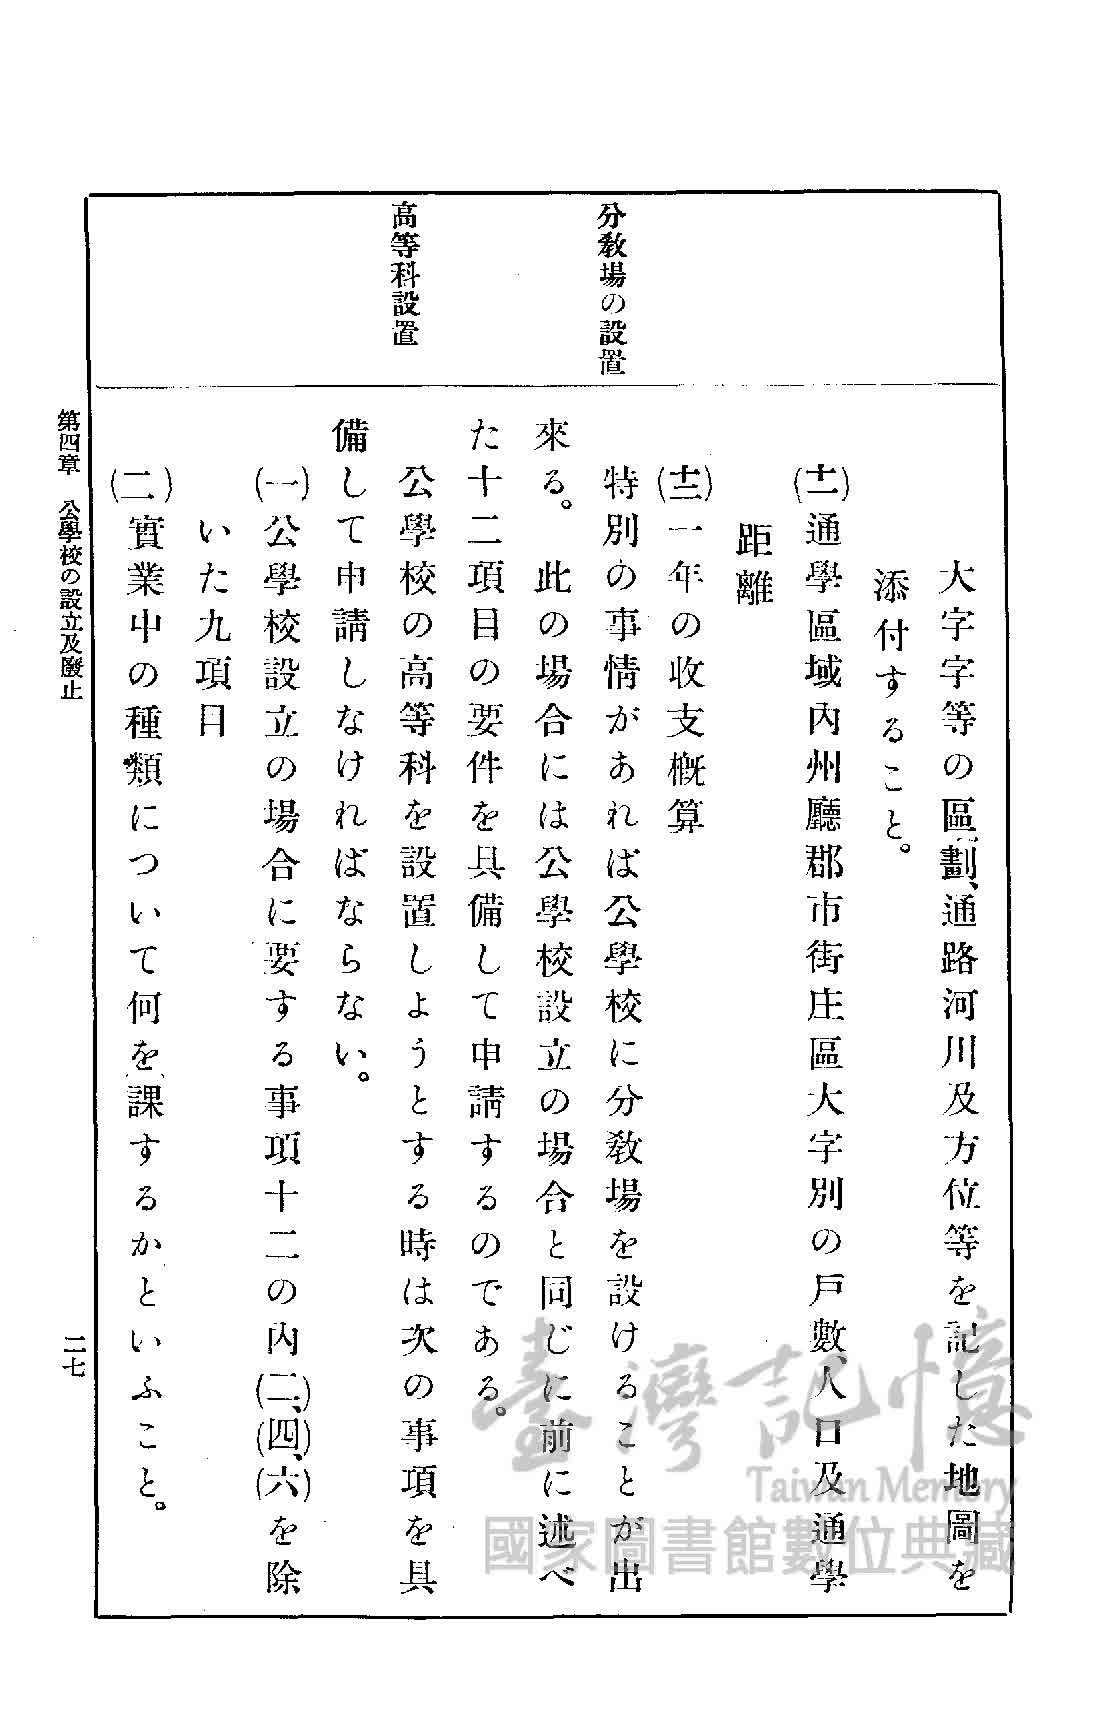 大字字等の區劃、通路河川及方位等を記した地圖を
添付すること。
(十一)通學區域內州廳郡市街庄區大字別の戶數、人口及通學
距離
(十二)一年の收支槪算
分敎場の設置
特別の事情があれば公學校に分敎場を設けることが出
來る。此の場合には公學校設立の場合と同じに前に述べ
た十二項目の要件を具備して申請するのである。
高等科設置
公學校の高等科を設置しようとする時は次の事項を具
備して申請しなければならない。
(一)公學校設立の場合に要する事項十二の內(二)、(四)、(六)を除
いた九項目
(二)實業中の種類について何を課するかといふこと。
第四章 公學校の設立及廢止
二七
臺灣記憶
Taiwan Memory
國家圖書館數位典藏